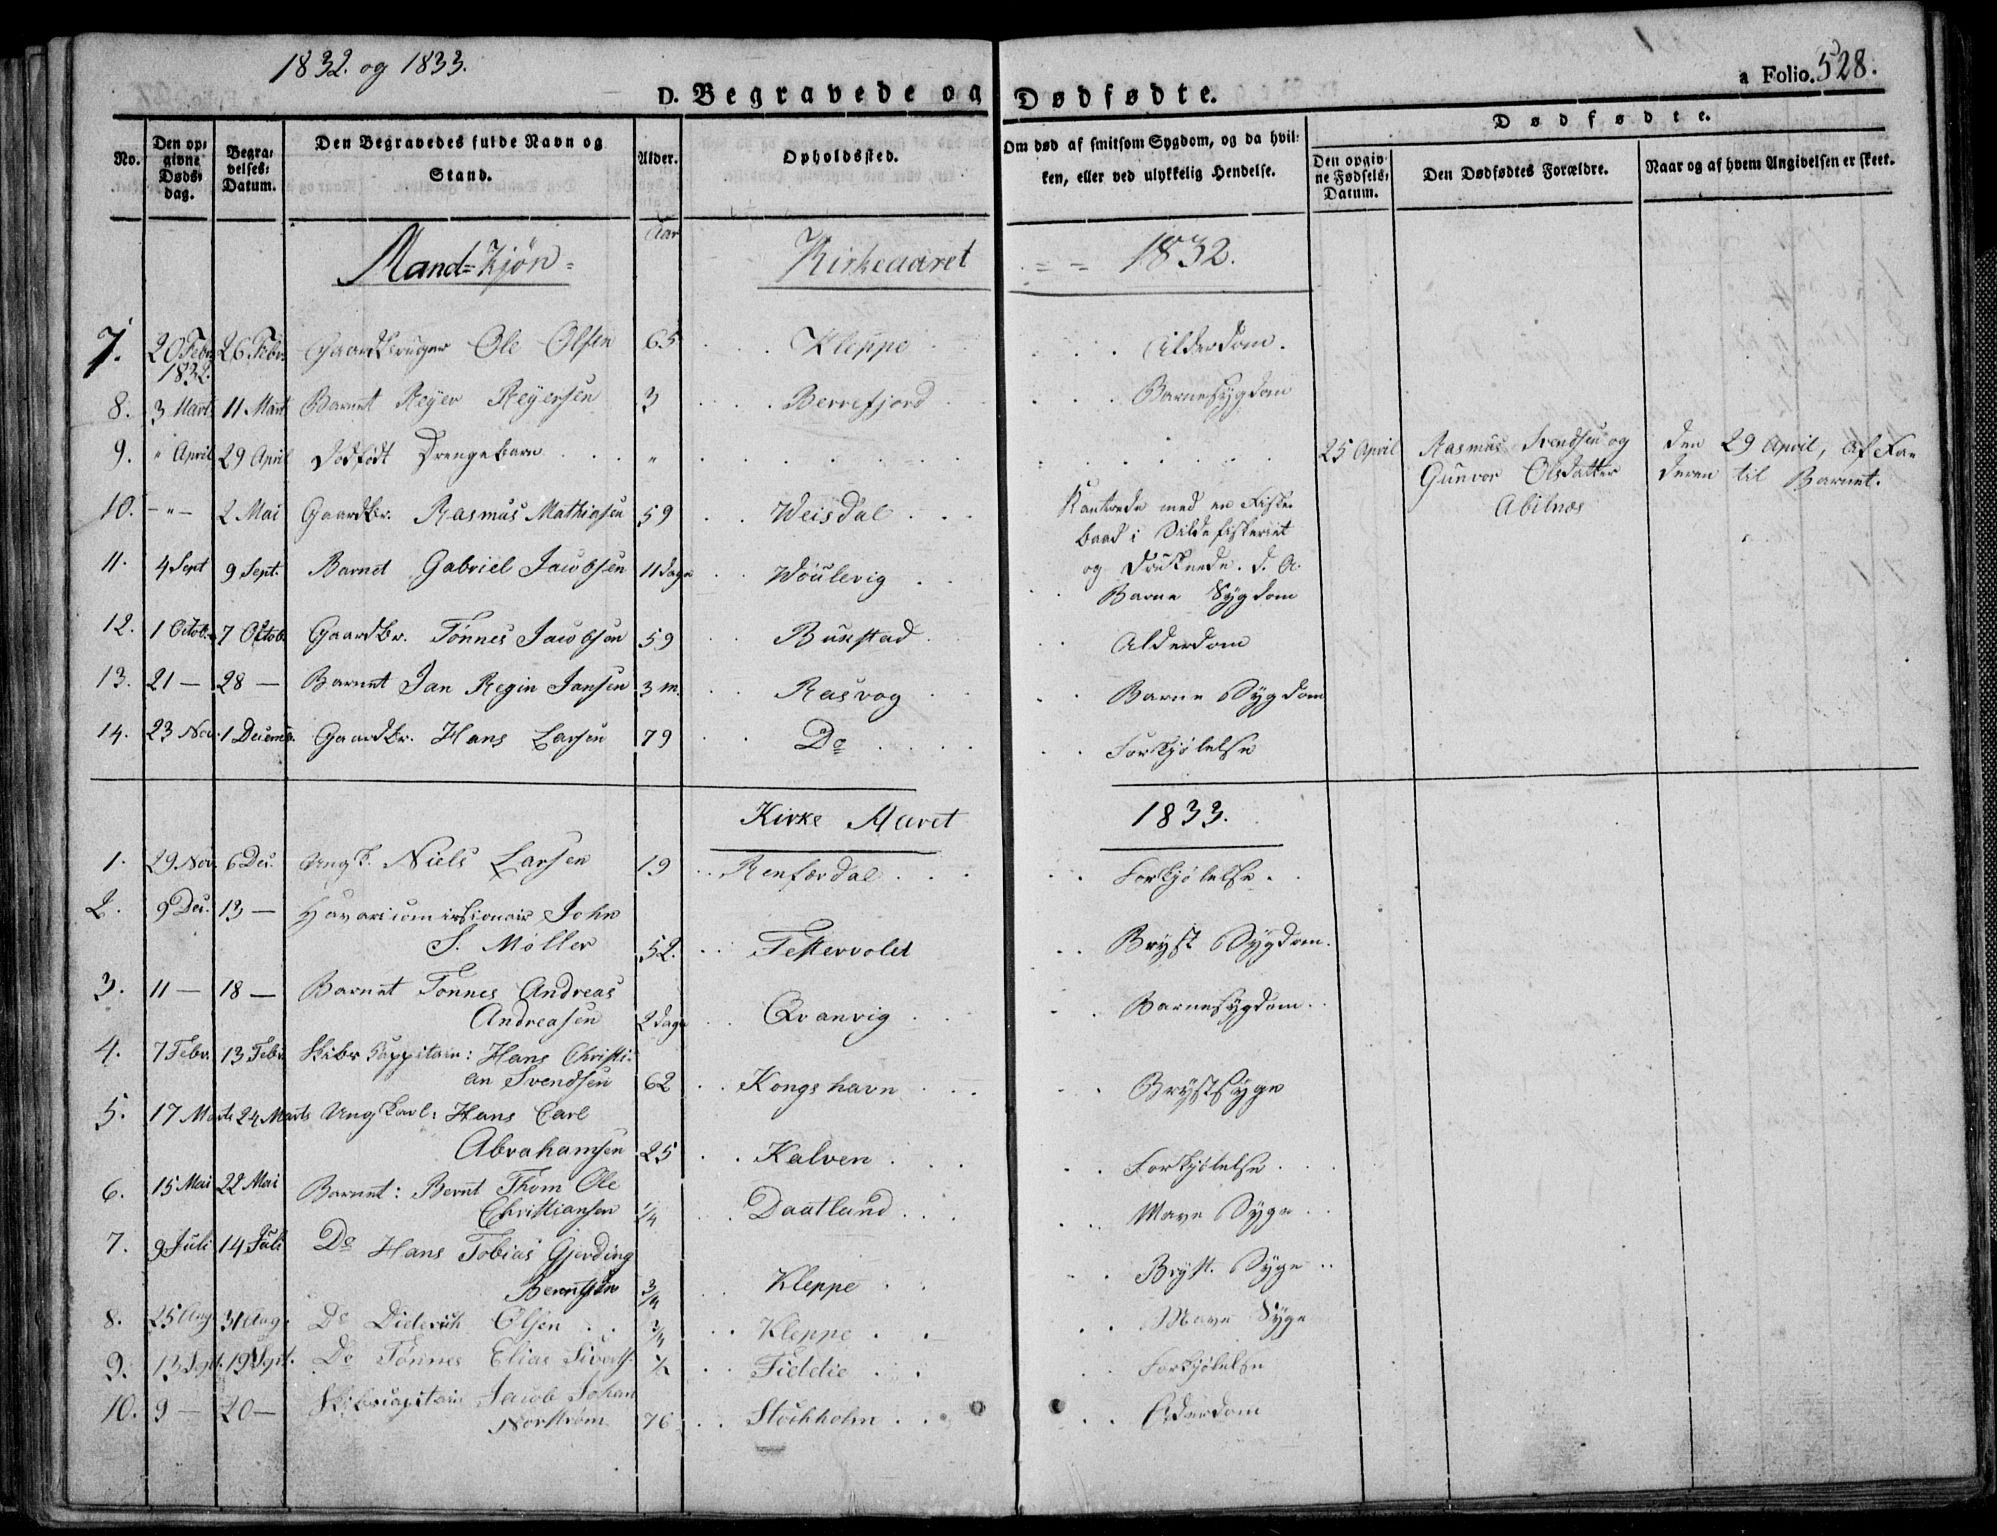 1832. og 1833.
a Folio. 528.
D. Begravede og Dødfødte.
No.
Den opgivne Dødsdag.
Begravelses Datum.
Den Begravedes fulde Navn og Stand.
Alder.
Opholdssted.
Om død af smitsom Sygdom, og da hvilken, eller ved ulykkelig Hendelse.
Dødfødte.
Den opgivne Fødsels Datum.
Den Dødfødtes Forældre.
Naar og af hvem Angivelsen er skeet.
Aar
Mand=Kjøn= Kirkeaaret = = 1832.
7. 20 Febr. 1832. 26 Febr. Gaardbruger Ole Olsen 65 Kleppe Alderdom.
8. 3 Mart. 11 Mart Barnet Reyer Reyersen 3 Berrefjord Barnesygdom
9. " April 29 April Dødfødt Drengebarn " 25 April Rasmus Svendsen og Gunvor Olsdatter Abilnæs den 29 April, af Faderen til Barnet.
10. -"- 2 Mai Gaardbr. Rasmus Mathiasen 59 Weisdal Kantrede med en Fiskebaad i Sildefiskeriet og Druknede. d. A.
11. 4 Sept 9 Sept. Barnet Gabriel Jacobsen 11 dage Wöulevig Barne Sygdom
12. 1 Octob. 7 Octob. Gaardbr. Tönnes Jacobsen 59 Buxstad Alderdom
13. 21 — 28 — Barnet Jan Regin Jansen 3 m. Rasvog Barne Sygdom
14. 23 Nov. 1 Decemb. Gaardbr. Hans Larsen 79 Do Forkjølelse
Kirke Aaret 1833.
1. 29 Nov. 6 Dec. Ungk. Niels Larsen 19 Renfærdal Forkjølelse.
2. 9 Dec. 13 — Havaricommissionair John S. Møller 52. Festervold Bryst Sygdom.
3. 11 — 18 — Barnet Tonnes Andreas Andreasen 2 dage Qvanvig Barnesygdom.
4. 7 Febr. 13 Febr. Skibs Cappitain: Hans Christian Svendsen 62 Kongshavn Brystsyge
5. 17 Marts 24 Marts Ungkarl: Hans Carl Abrahamsen 25 Kalven Forkjølelse
6. 15 Mai 22 Mai Barnet: Bernt Thom Ole Christiansen 1/4 Daatland Mave Syge
7. 9 Juli 14 Juli Do Hans Tobias Gjerding Berntsen 3/4 Kleppe Bryst Syge
8. 25 Aug. 31 Aug. Do Diderich Olsen 3/4 Kleppe Mave Syge
9. 13 Sept. 19 Sept. Do Tönnes Elias Sivert. 1/2 Fiddie Forkjølelse
10. 9 — 20 — Skibscapitain Jacob Johan Norström 76 Stockholm Alderdom